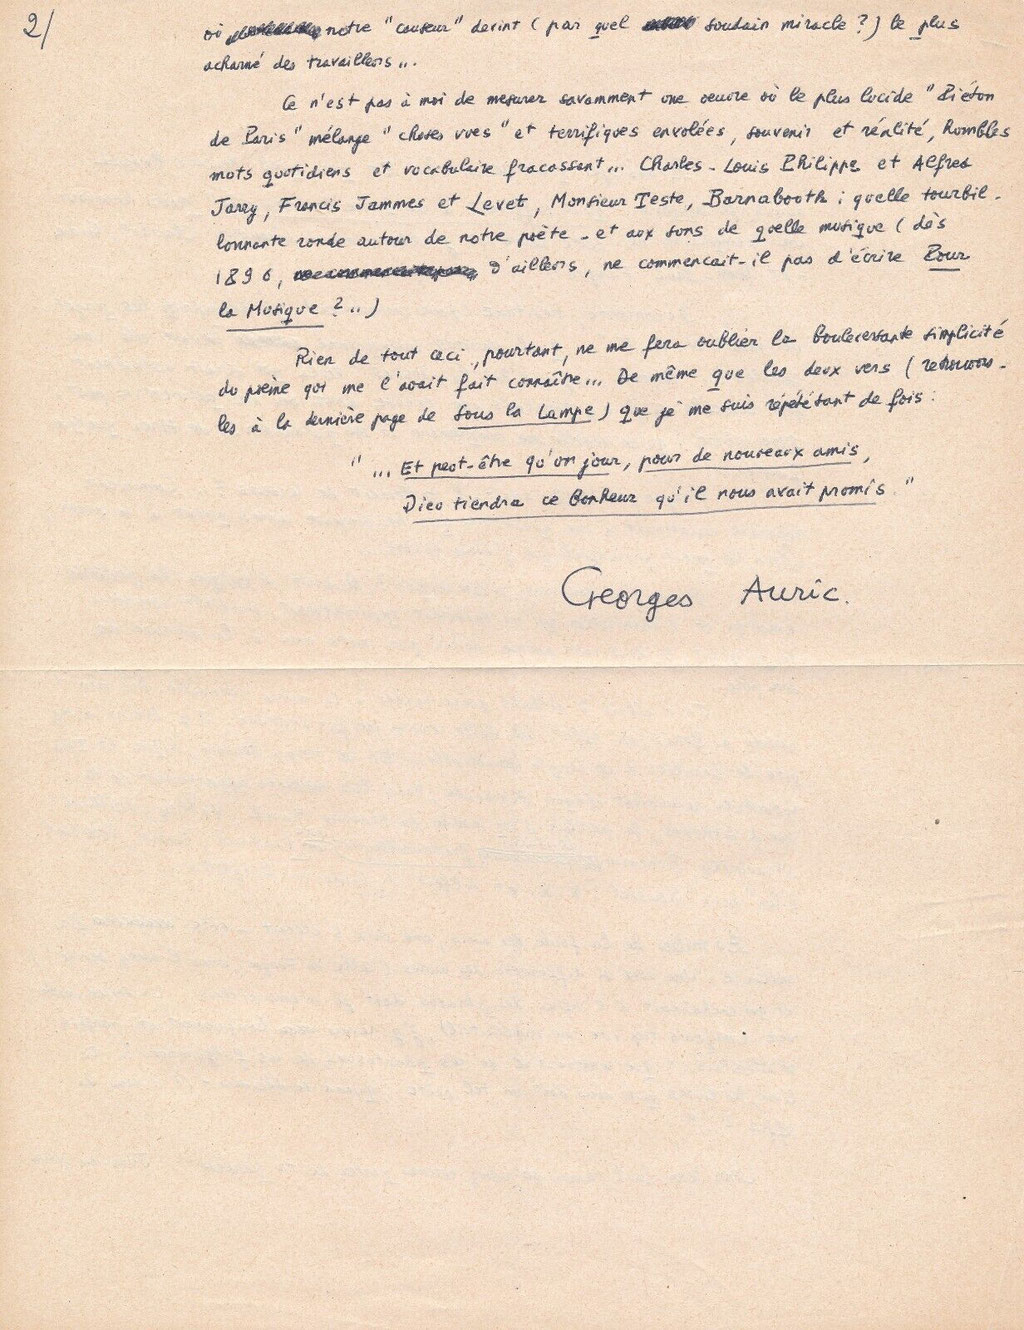 2/
où notre "causeur" devint (par quel soudain miracle ?) le plus
acharné des travailleurs...
Ce n'est pas à moi de mesurer savamment une oeuvre où le plus lucide "Piéton
de Paris" mélange "choses vues" et terrifiques envolées, souvenir et réalité, humbles
mots quotidiens et vocabulaire fracassant... Charles-Louis Philippe et Alfred
Jarry, Francis Jammes et Levet, Monsieur Teste, Barnabooth : quelle tourbil-
lonnante ronde autour de notre poète - et aux sons de quelle musique (dès
1896, d'ailleurs, ne commencait-il pas d'écrire Pour
la Musique ?..)
Rien de tout ceci, pourtant, ne me fera oublier la bouleversante simplicité
du poème qui me l'avait fait connaître... De même que les deux vers (retrouvons-
les à la dernière page de Sous la Lampe) que je me suis répété tant de fois :
"... Et peut-être qu'un jour, pour de nouveaux amis,
Dieu tiendra ce bonheur qu'il nous avait promis."
Georges Auric.